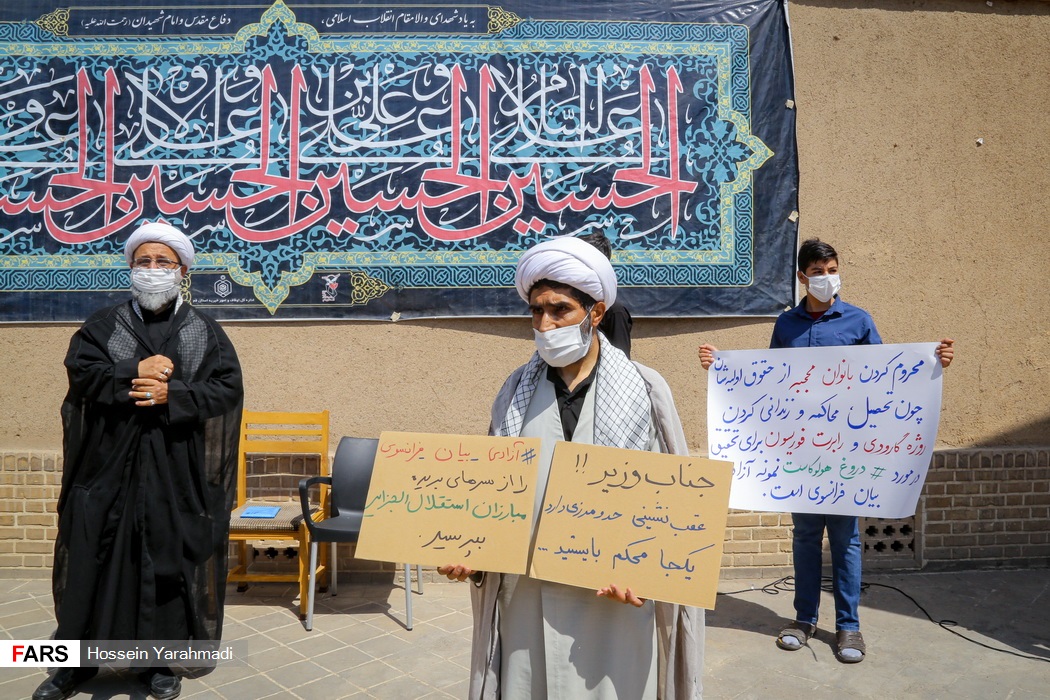 به یاد شهدای والامقام انقلاب اسلامی ،
دفاع مقدس و امام شهیدان (رحمت الله علیه)
الحسین الحسین الحسین الحسین
علیه السلام و علی علی بن
محروم کردن بانوان محجبه از حقوق اولیه‌شان
چون تحصیل محاکمه و زندانی کردن
روژه گارودی و رابرت فوریسون برای تحقیق
در مورد # دروغ هولوکاست نمونه آزادی
بیان فرانسوی است.
#آزادی_بیان_فرانسوی
را از سرهای بریده
مبارزان استقلال الجزایر
بپرسید.
جناب وزیر !!
عقب نشینی حد و مرزی دارد
یکجا محکم بایستید ...
FARS
Hossein Yarahmadi